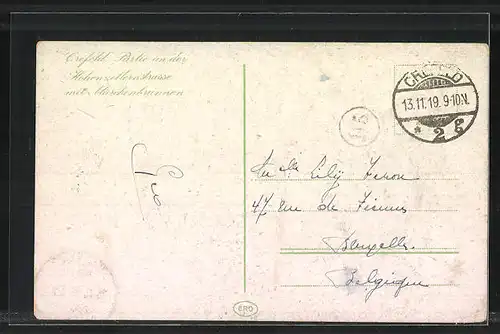 Crefeld Partie in der
Hohenzollernstrasse
mit Märchenbrunnen
CREFELD
13.11.19. 9-10N.
* 2 g
Mlle Lily
47 Rue de
Bruxelles
Belgique
ERO